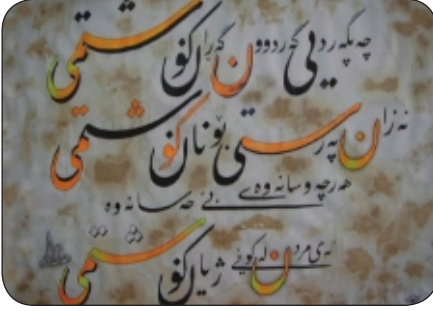 چەپگەردیی گەردوون گەڕان کوشتمی
نەزان پەرستی بۆ نان کوشتمی
هەرچە وسانەوەی بێ حەسانەوە
ئەی مردن لە کوێی ژیان کوشتمی